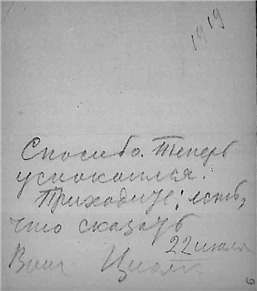 1919
Спасибо. Теперь
успокоился.
Приходите; есть,
что сказать
22 июля
Ваш Циолк
6